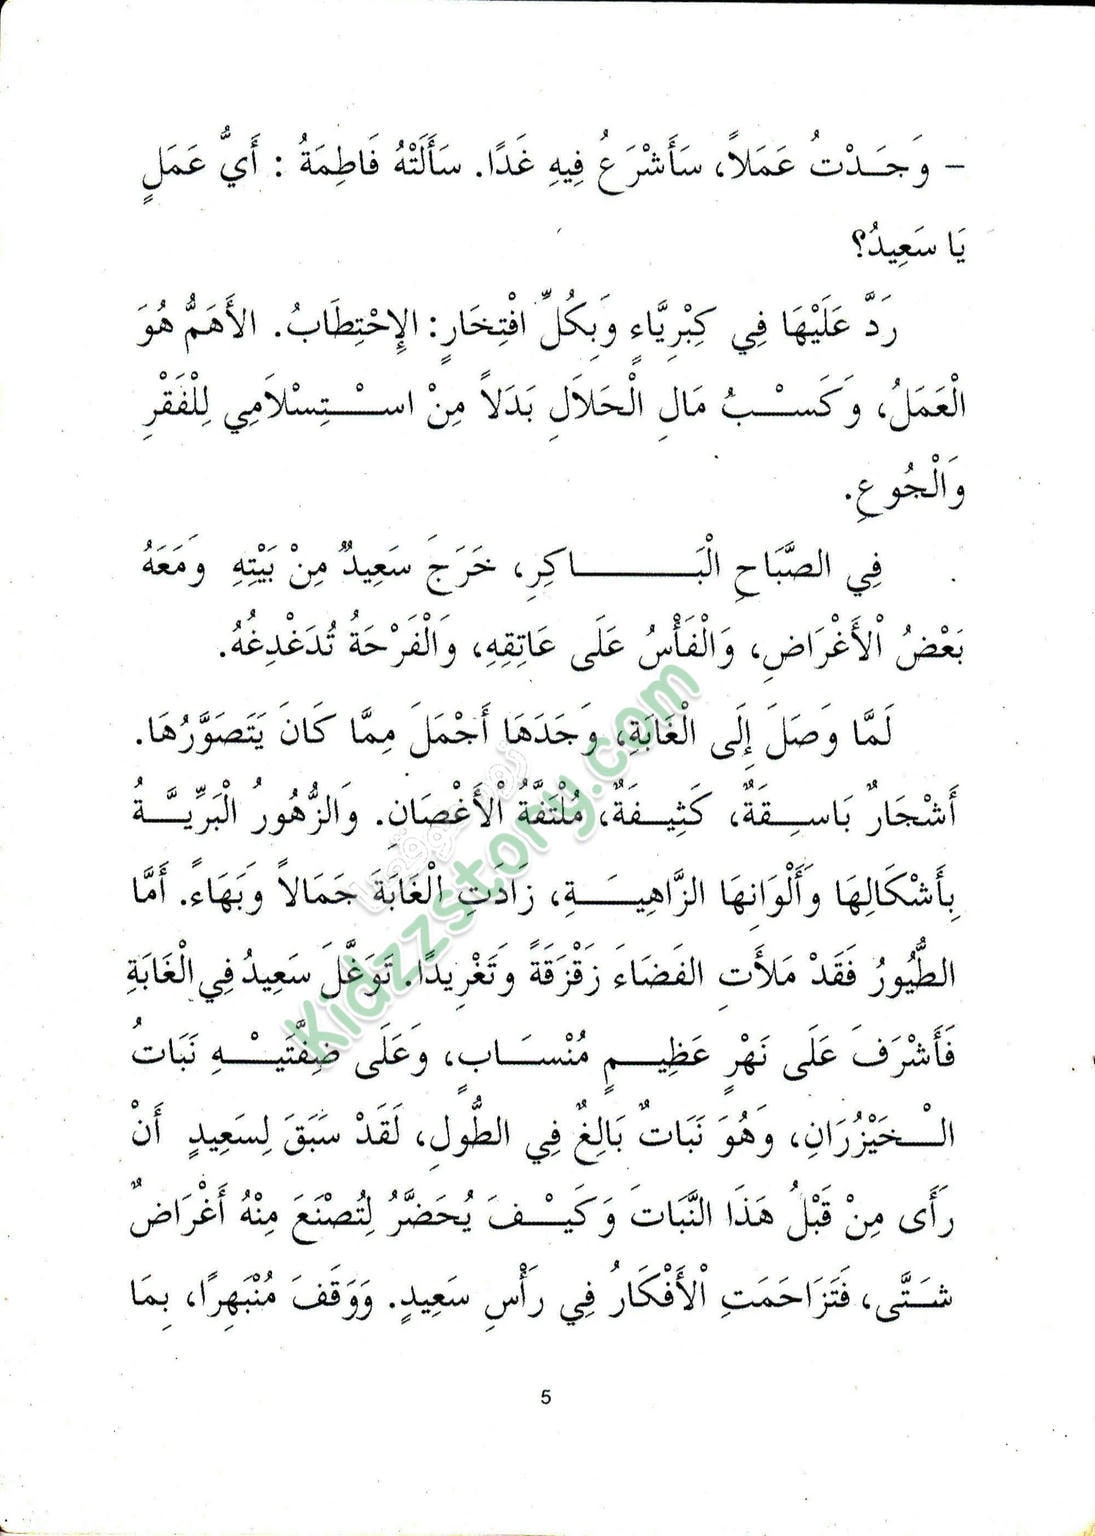 – وَجَدْتُ عَمَلاً، سَأَشْرَعُ فِيهِ غَدًا. سَأَلَتْهُ فَاطِمَةُ : أَيُّ عَمَلٍ
يَا سَعِيدُ؟
رَدَّ عَلَيْهَا فِي كِبْرِيَّاءٍ وَبِكُلِّ افْتِخَارٍ: الإِحْتِطَابُ. الأَهَمُّ هُوَ
الْعَمَلُ، وَكَسْبُ مَالِ الْحَلاَلِ بَدَلاً مِنْ اسْتِسْلاَمِي لِلْفَقْرِ
وَالْجُوعِ.
فِي الصَّبَاحِ الْبَاكِرِ، خَرَجَ سَعِيدٌ مِنْ بَيْتِهِ وَمَعَهُ
بَعْضُ الْأَغْرَاضِ، وَالْفَأْسُ عَلَى عَاتِقِهِ، وَالْفَرْحَةُ تُدَغْدِغُهُ.
لَمَّا وَصَلَ إِلَى الْغَابَةِ، وَجَدَهَا أَجْمَلَ مِمَّا كَانَ يَتَصَوَّرُهَا.
أَشْجَارٌ بَاسِقَةٌ، كَثِيفَةٌ، مُلْتَفَّةُ الْأَغْصَانِ. وَالزُّهُورُ الْبَرِّيَّةُ
بِأَشْكَالِهَا وَأَلْوَانِهَا الزَّاهِيَةِ، زَادَتِ الْغَابَةَ جَمَالاً وَبَهَاءً. أَمَّا
الطُّيُورُ فَقَدْ مَلَأَتِ الفَضَاءَ زَقْزَقَةً وَتَغْرِيدًا. تَوَغَّلَ سَعِيدُ فِي الْغَابَةِ
فَأَشْرَفَ عَلَى نَهْرٍ عَظِيمٍ مُنْسَابٍ، وَعَلَى ضِفَّتَيْهِ نَبَاتُ
الْخَيْزُرَانِ، وَهُوَ نَبَاتٌ بَالِغٌ فِي الطُّولِ، لَقَدْ سَبَقَ لِسَعِيدٍ أَنْ
رَأَى مِنْ قَبْلُ هَذَا النَّبَاتَ وَكَيْفَ يُحَضَّرُ لِتُصْنَعَ مِنْهُ أَغْرَاضٌ
شَتَّى، فَتَزَاحَمَتِ الْأَفْكَارُ فِي رَأْسِ سَعِيدٍ. وَوَقَفَ مُنْبَهِرًا، بِمَا
5
Kidzzstory.com